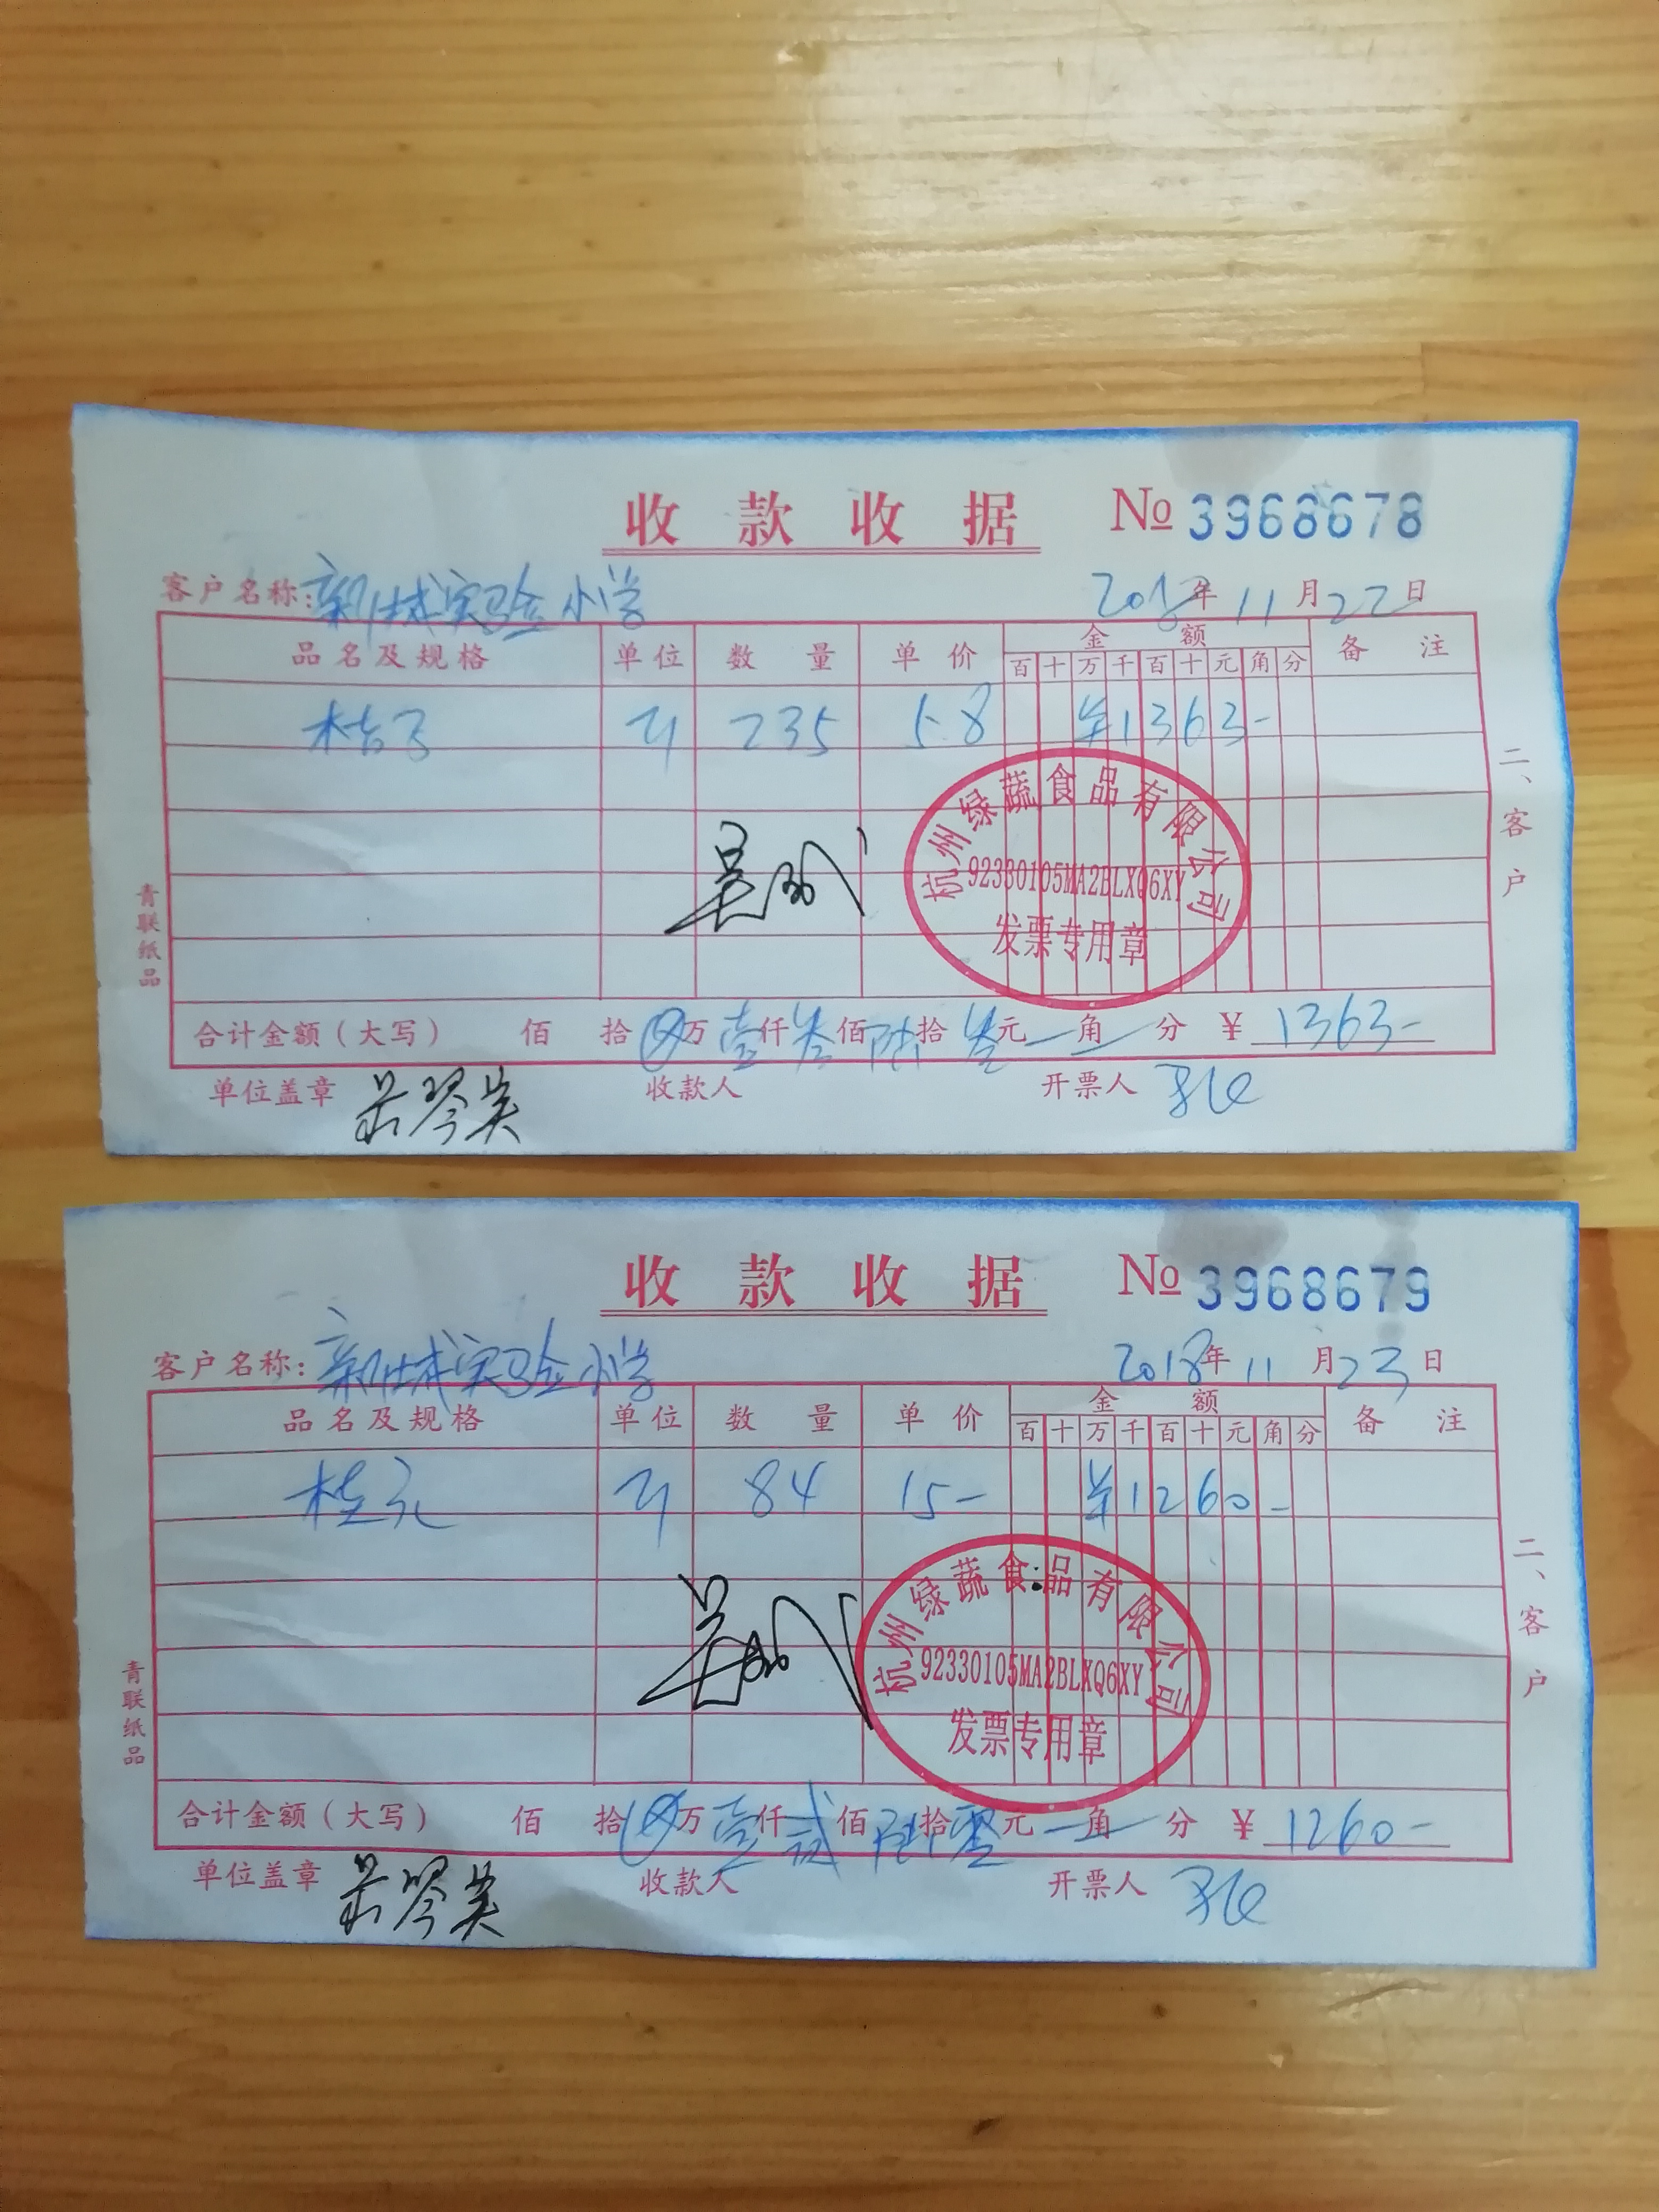 收款收据 № 3968678
客户名称: 新城实验小学 2018年11月22日
品名及规格 单位 数量 单价 金额 备注
百 十 万 千 百 十 元 角 分
桔子 斤 235 5.8 ¥1363-
杭州绿蔬食品有限公司
92330105MA2BLXQ6XY
发票专用章
二、客户
青联纸品
合计金额(大写) 佰 拾 万壹仟叁佰陆拾叁元 角 分 ¥ 1363-
单位盖章 收款人 开票人
收款收据 № 3968679
客户名称: 新城实验小学 2018年11月23日
品名及规格 单位 数量 单价 金额 备注
百 十 万 千 百 十 元 角 分
桂元 斤 84 15- ¥1260-
杭州绿蔬食品有限公司
92330105MA2BLXQ6XY
发票专用章
二、客户
青联纸品
合计金额(大写) 佰 拾 万壹仟贰佰陆拾零元 角 分 ¥ 1260-
单位盖章 收款人 开票人